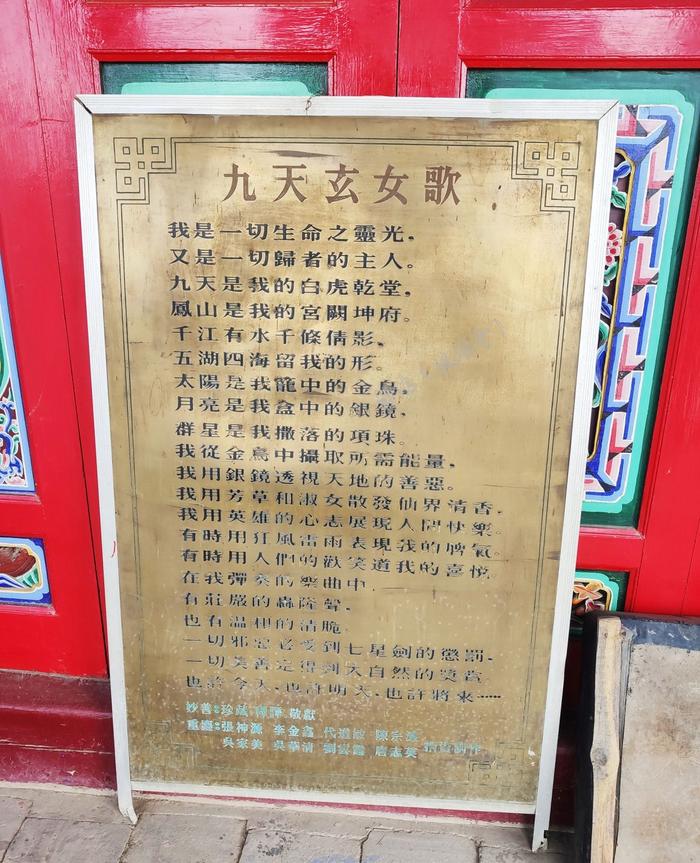 九天玄女歌
我是一切生命之靈光，
又是一切歸者的主人。
九天是我的白虎乾堂，
鳳山是我的宮闕坤府。
千江有水千條倩影，
五湖四海留我的形。
太陽是我籠中的金烏，
月亮是我盒中的銀鏡，
群星是我撒落的項珠。
我從金烏中攝取所需能量，
我用銀鏡透視天地的善惡。
我用芳草和淑女散發仙界清香，
我用英雄的心志展現人間快樂。
有時用狂風雷雨表現我的脾氣，
有時用人們的歡笑道我的喜悅
在我彈奏的樂曲中
有莊嚴的轟隆聲，
也有溫和的清脆
一切邪惡必受到七星劍的懲罰，
一切美善定得到大自然的獎賞
也許今天，也許明天，也許將來……
妙善：珍藏 敬獻
重鐫：張神源 李金鑫 代道 陳宗
吳家美 吳華清 劉 唐志英